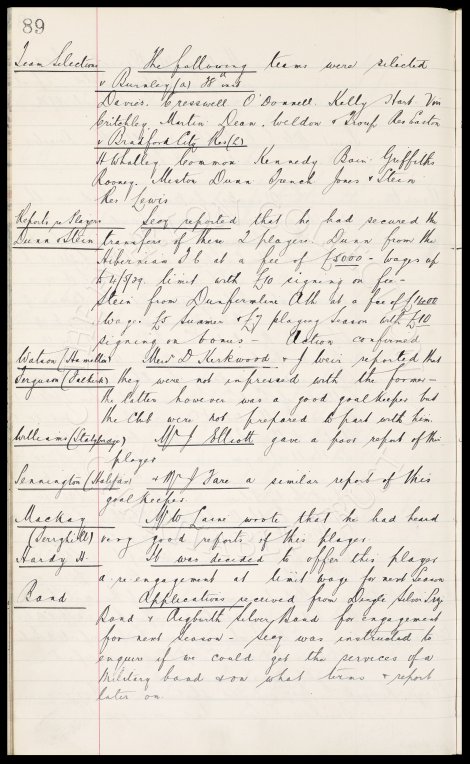 89
Team Selections The following teams were selected
v Burnley (a) 28th inst
Davies. Cresswell O'Donnell. Kelly Hart Von
Critchley Martin Dean. Weldon & Troup Res Easton
v Bradford City Res (L)
H Whalley Common Kennedy Bain Griffiths
Rooney. Meston Dunn French Jones & Stein
Res Lewis
Reports re Players Secy reported that he had secured the
Dunn & Stein transfers of these 2 players. Dunn from the
Hibernian F C at a fee of £5000 - wages up
to 4/5/29. limit with £10 signing on fee -
Stein from Dunfermline Ath at a fee of £1400
wage £5 summer & £7 playing season with £10
signing on bonus - Action confirmed
Watson (Hamilton) Messrs D Kirkwood & J Weir reported that
Ferguson (Falkirk) they were not impressed with the former -
the latter however was a good goalkeeper but
the Club were not prepared to part with him.
Williams (Stalybridge) Mr J Elliott gave a poor report of this
player
Pennington (Halifax) & Mr J Fare a similar report of this
goalkeeper
Mackay Mr W Laine wrote that he had heard
(Torryhill) very good reports of this player
Hardy H. It was decided to offer this player
a re engagement at limit wage for next Season
Band Applications received from Dingle Silver Prize
Band & Aigburth Silver Band for engagement
for next Season - Secy was instructed to
enquire if we could get the services of a
Military band & on what terms & report
later on.